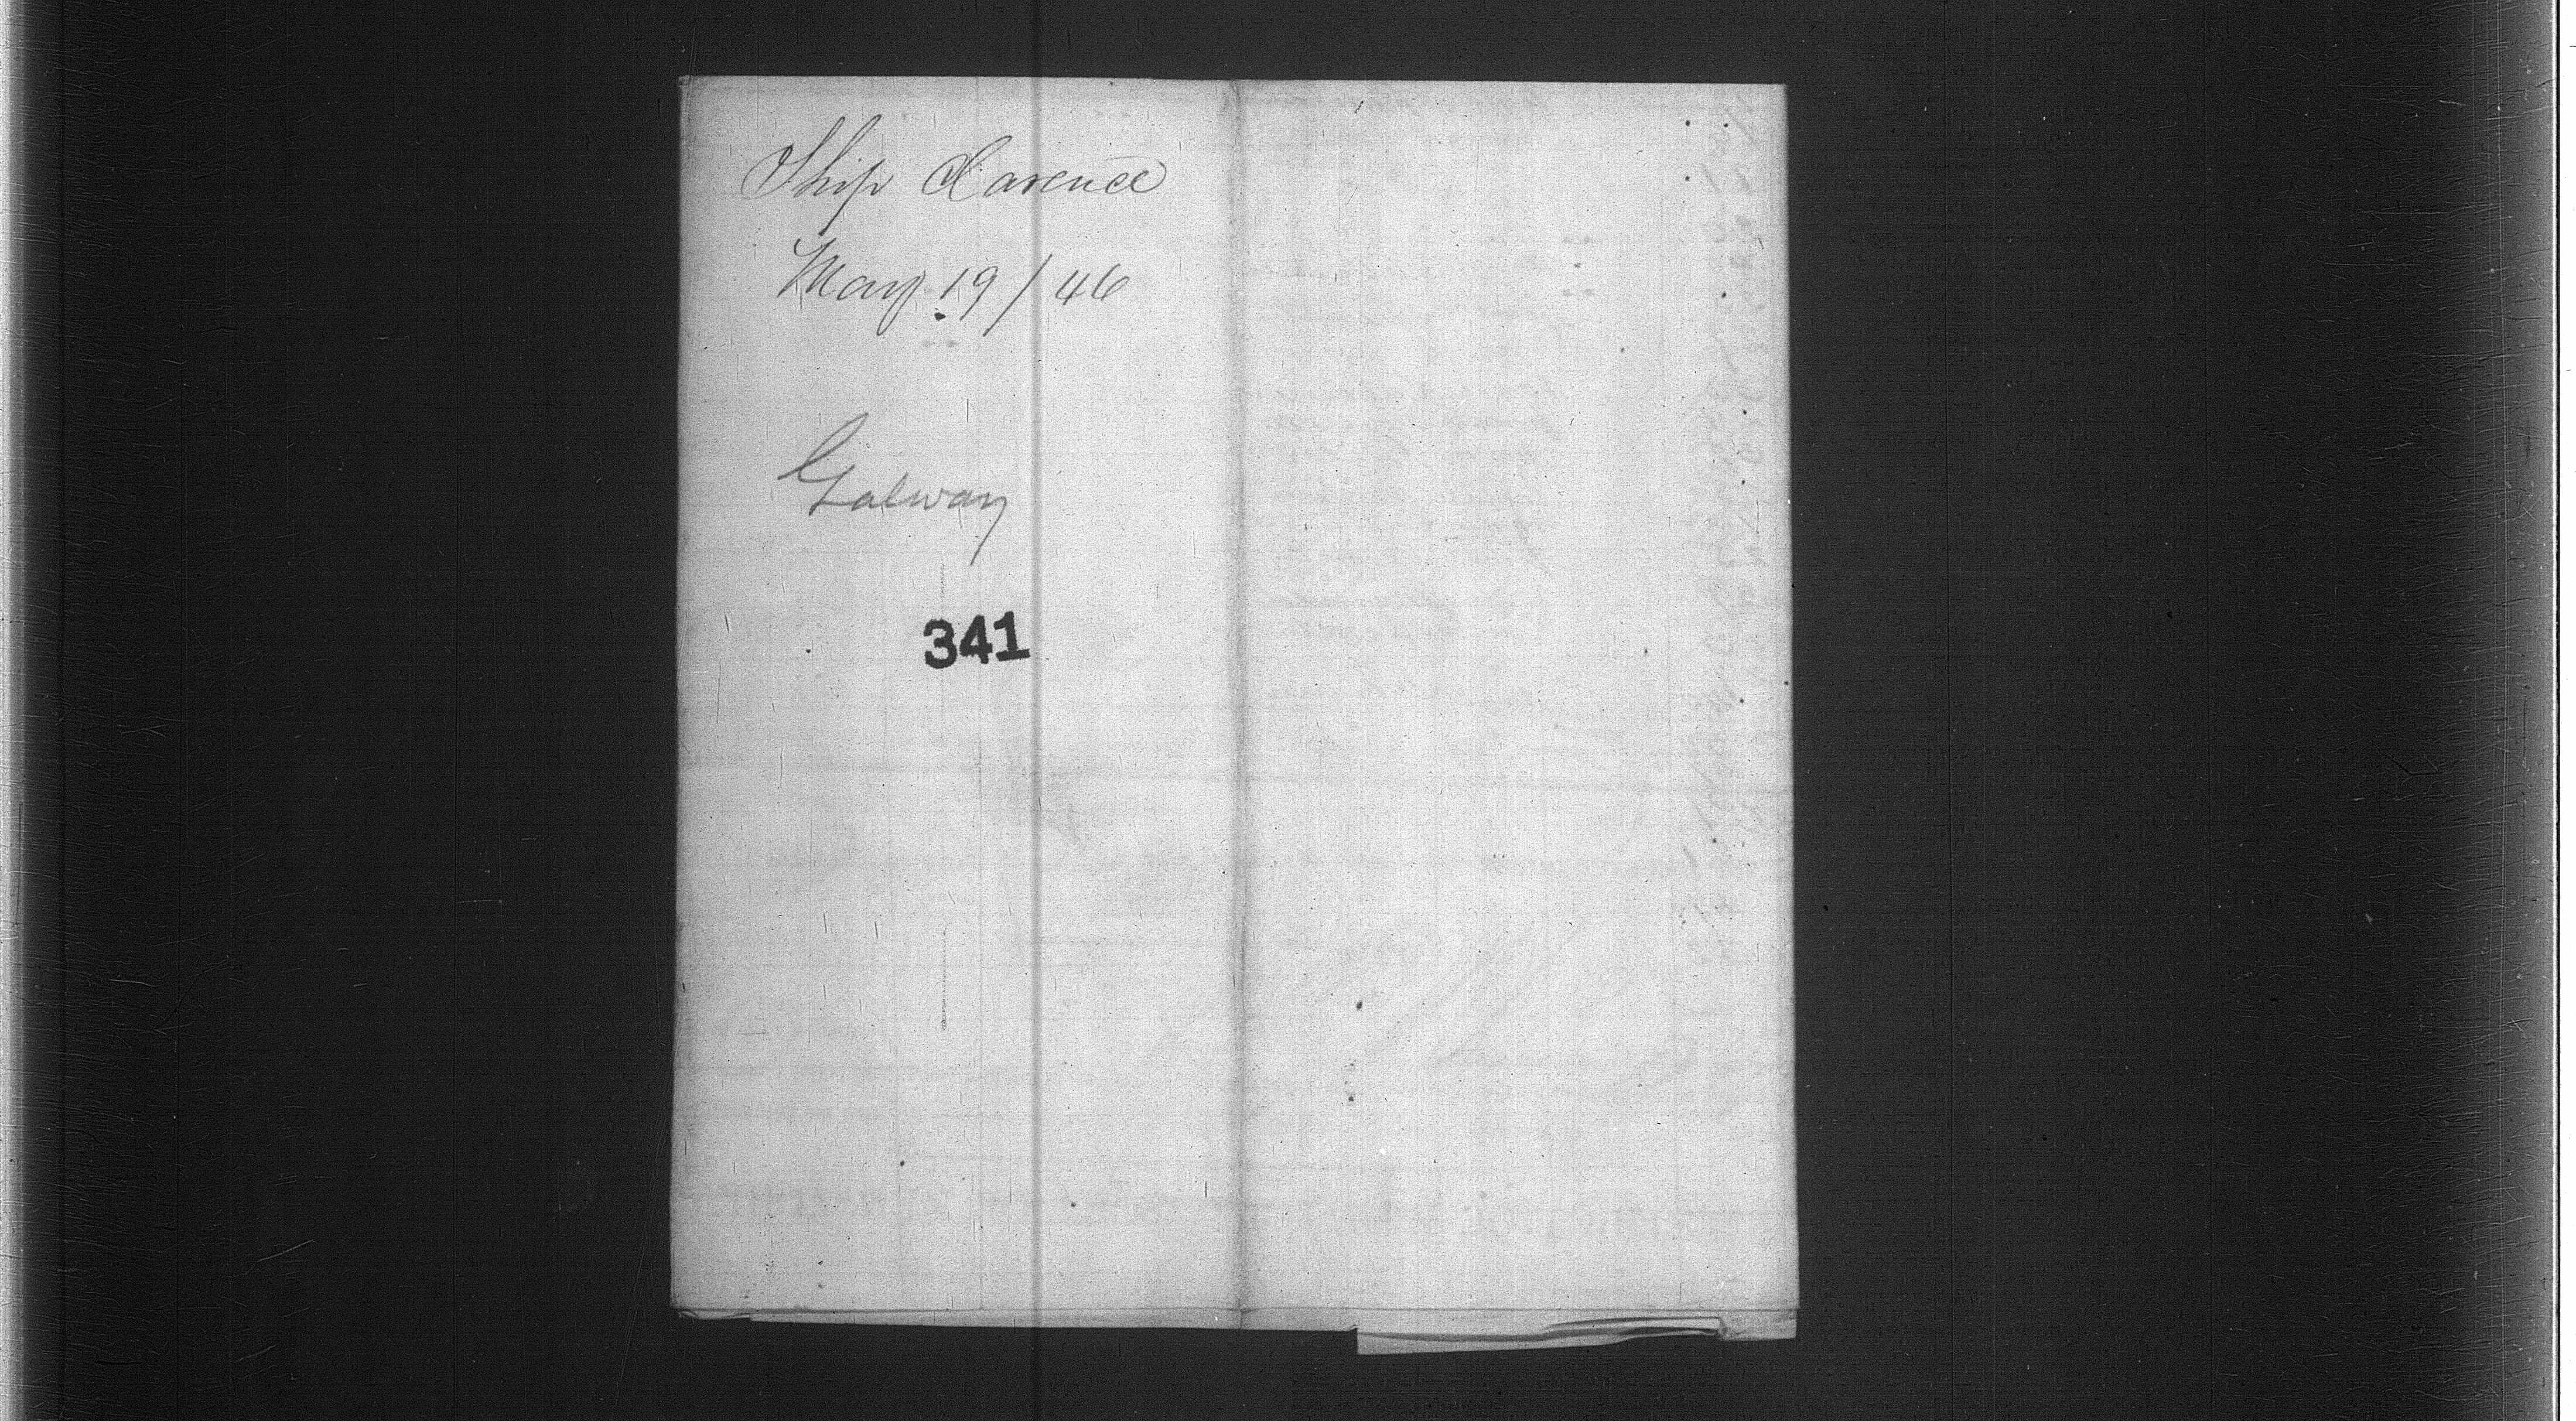 Ship Clarence
May 19/46
Galway
341